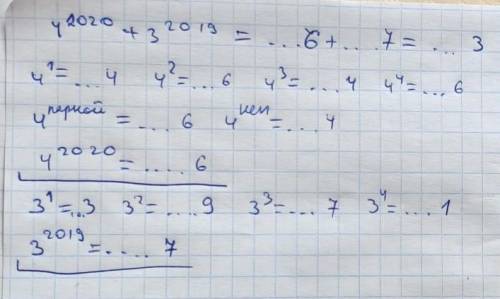 4²⁰²⁰ + 3²⁰¹⁹ = ...6 + ...7 = ... 3
4¹ = ... 4 4² = ... 6 4³ = ... 4 4⁴ = ... 6
4^парной = .... 6 4^неп = ... 4
4²⁰²⁰ = ..... 6
3¹ = ...3 3² = .... 9 3³ = .... 7 3⁴ = .... 1
3²⁰¹⁹ = .... 7